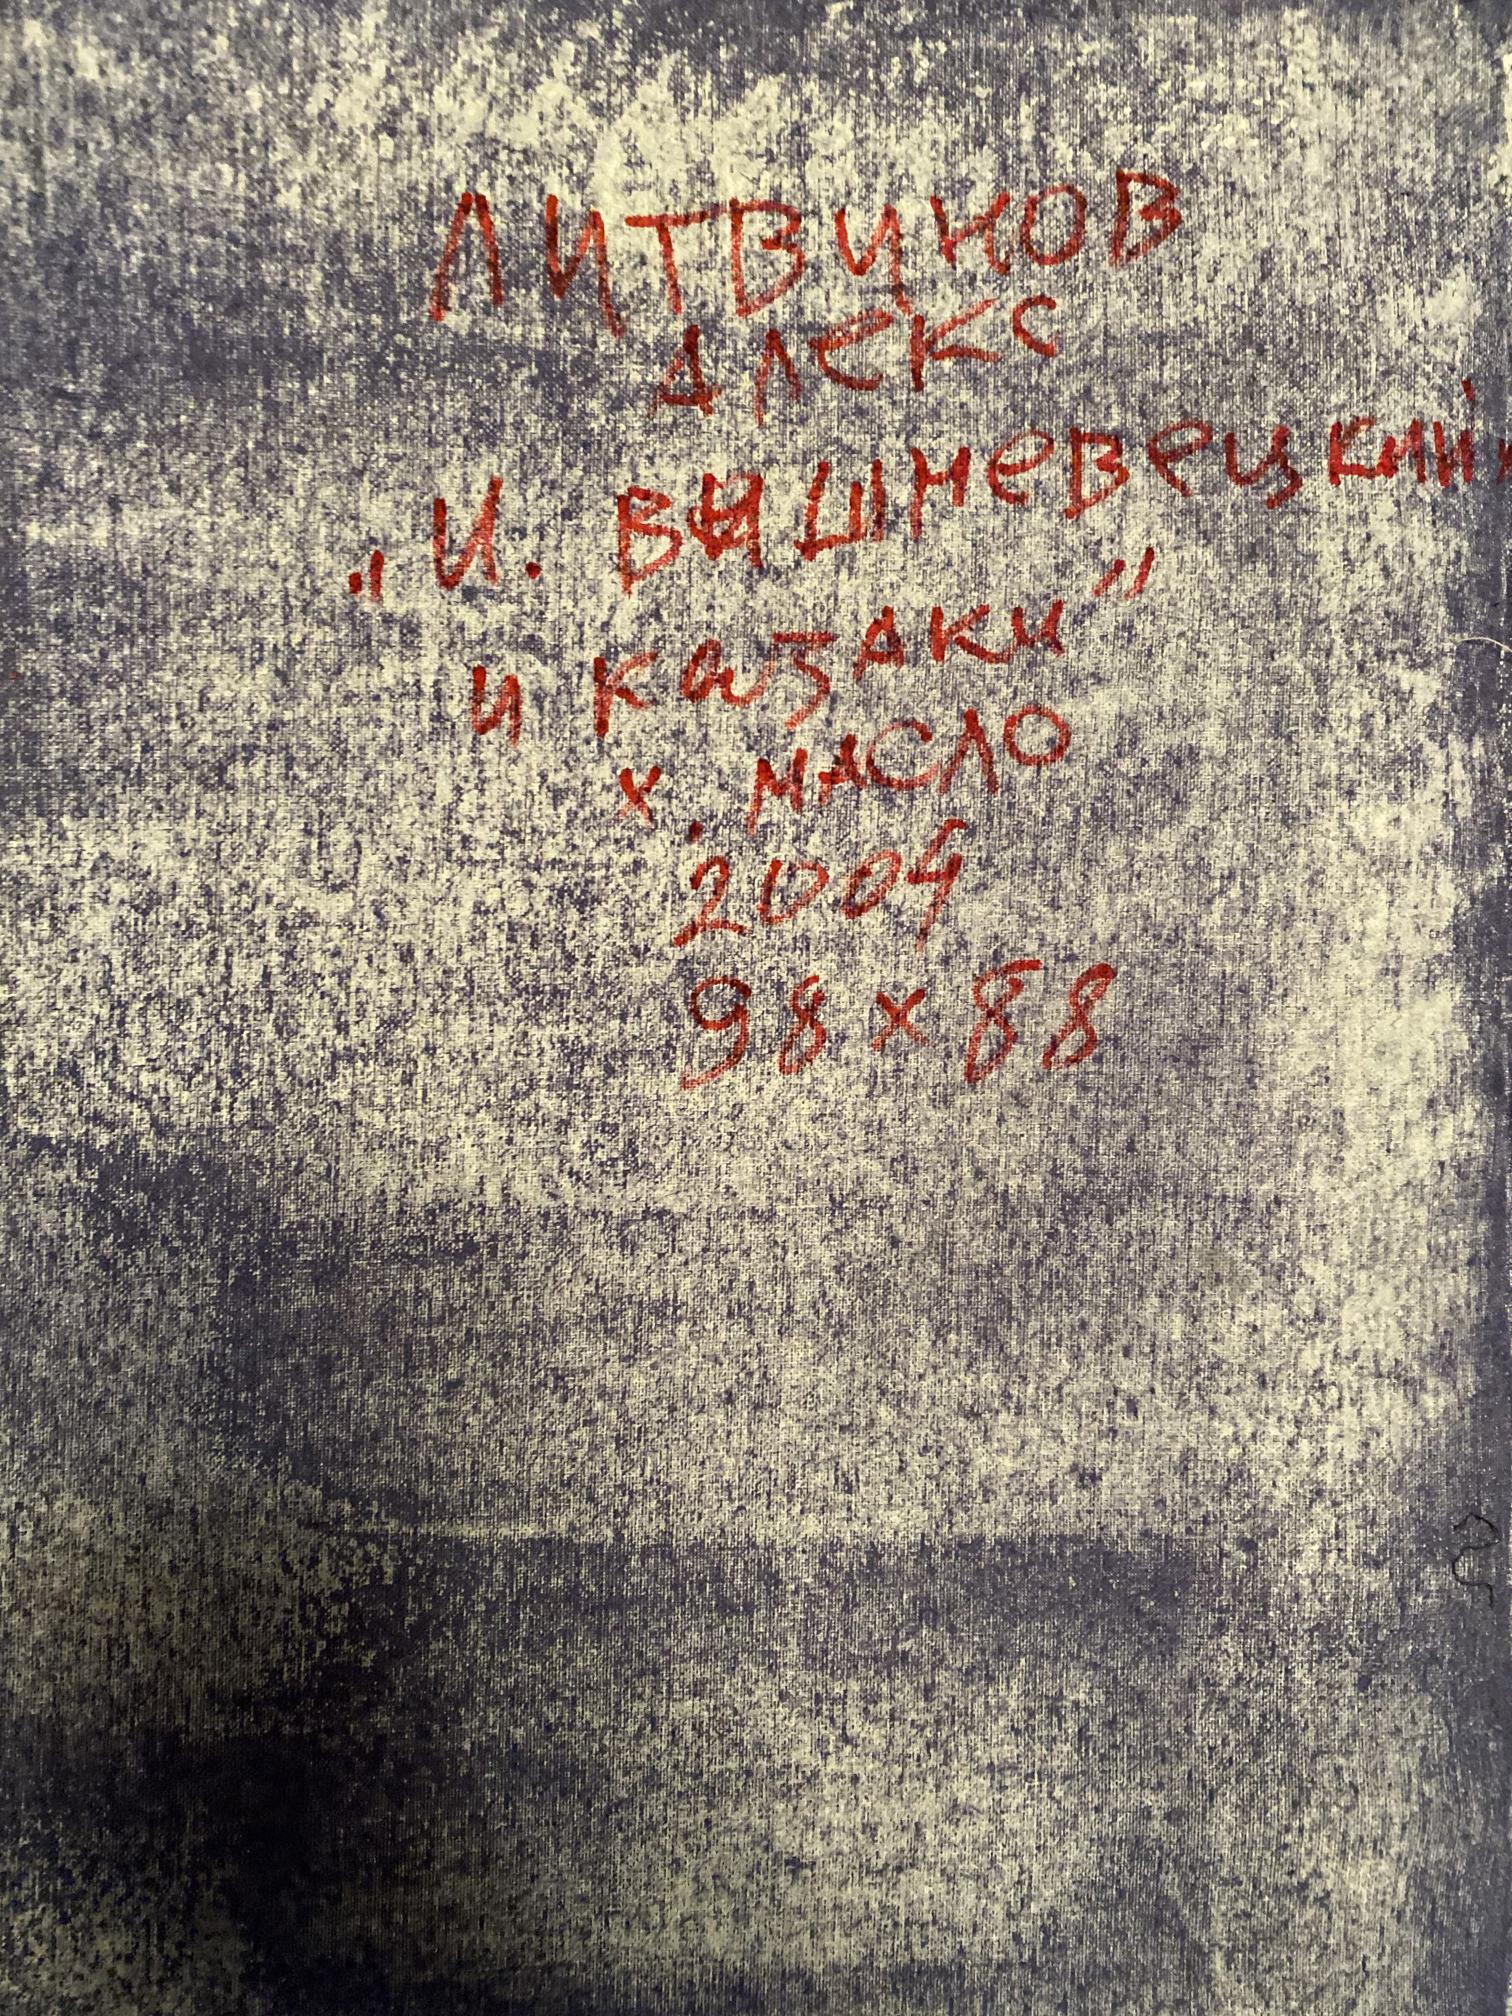 ЛИТВИНОВ
АЛЕКС
„И. ВЫШНЕВЕЦКИЙ
и казаки”
х. масло
2004
98 х 88